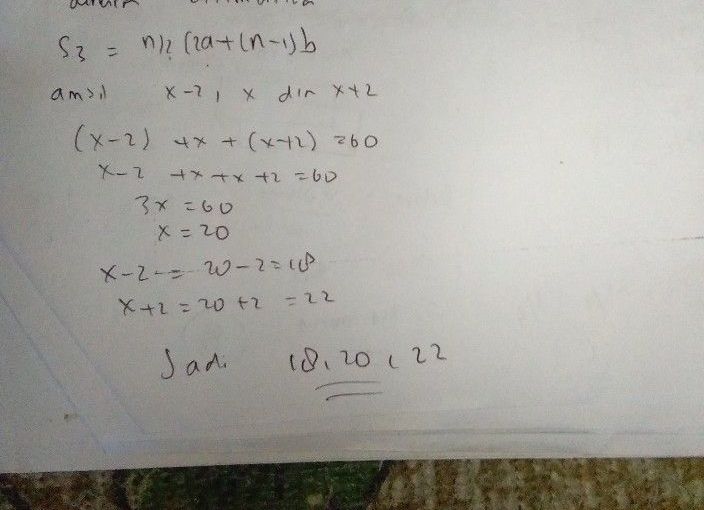 S3 = n/2 (2a+(n-1)b
ambil x-2, x dan x+2
(x-2) +x + (x+2) =60
x-2 +x+x+2 =60
3x =60
x = 20
x-2 = 20-2=18
x+2 = 20+2 = 22
Jadi 18, 20, 22